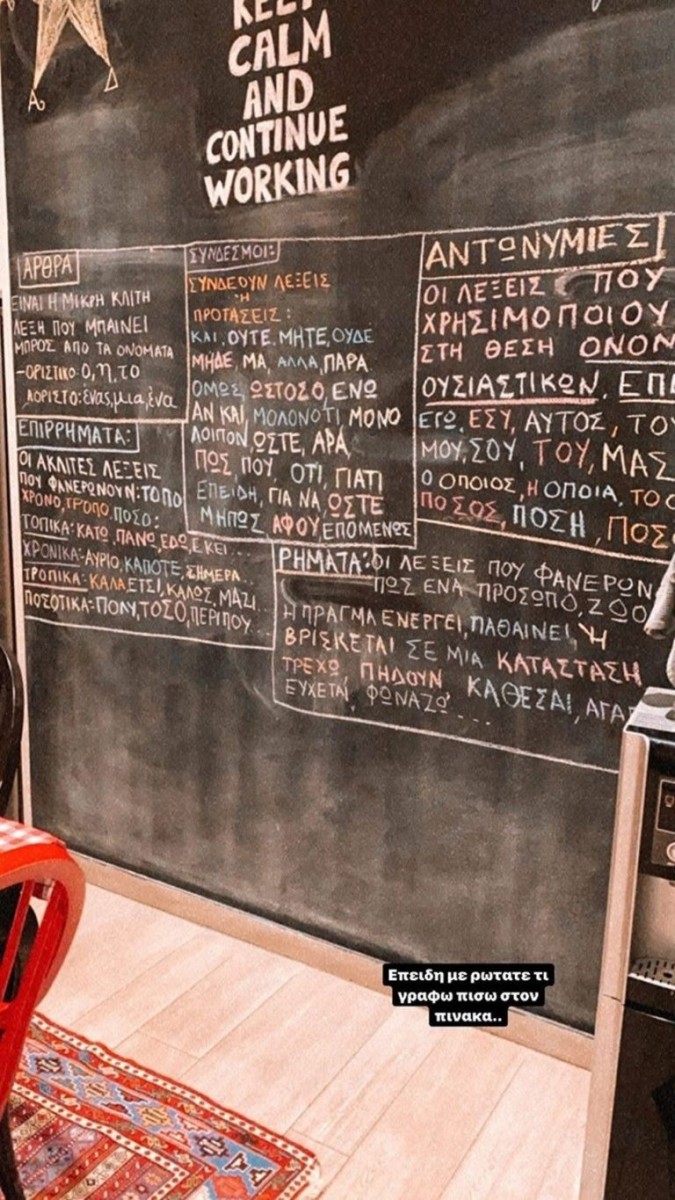 KEEP
CALM
AND
CONTINUE
WORKING
ΑΡΘΡΑ
ΕΙΝΑΙ Η ΜΙΚΡΗ ΚΛΙΤΗ
ΛΕΞΗ ΠΟΥ ΜΠΑΙΝΕΙ
ΜΠΡΟΣ ΑΠΟ ΤΑ ΟΝΟΜΑΤΑ
-ΟΡΙΣΤΙΚΟ: Ο, η, το
ΑΟΡΙΣΤΟ: ένας, μια, ένα
ΕΠΙΡΡΗΜΑΤΑ:
ΟΙ ΑΚΛΙΤΕΣ ΛΕΞΕΙΣ
ΠΟΥ ΦΑΝΕΡΩΝΟΥΝ: ΤΟΠΟ
ΧΡΟΝΟ, ΤΡΟΠΟ, ΠΟΣΟ:
ΤΟΠΙΚΑ: ΚΑΤΩ, ΠΑΝΩ, ΕΔΩ, ΕΚΕΙ...
ΧΡΟΝΙΚΑ:-ΑΥΡΙΟ, ΚΑΠΟΤΕ, ΣΗΜΕΡΑ..
ΤΡΟΠΙΚΑ: ΚΑΛΑ, ΕΤΣΙ, ΚΑΛΩΣ, ΜΑΖΙ..
ΠΟΣΟΤΙΚΑ: ΠΟΛΥ, ΤΟΣΟ, ΠΕΡΙΠΟΥ...
ΣΥΝΔΕΣΜΟΙ:
ΣΥΝΔΕΟΥΝ ΛΕΞΕΙΣ
Ή
ΠΡΟΤΑΣΕΙΣ:
ΚΑΙ, ΟΥΤΕ, ΜΗΤΕ, ΟΥΔΕ
ΜΗΔΕ, ΜΑ, ΑΛΛΑ, ΠΑΡΑ
ΟΜΩΣ, ΩΣΤΟΣΟ, ΕΝΩ
ΑΝ ΚΑΙ, ΜΟΛΟΝΟΤΙ, ΜΟΝΟ
ΛΟΙΠΟΝ, ΩΣΤΕ, ΑΡΑ,
ΠΩΣ, ΠΟΥ, ΟΤΙ, ΓΙΑΤΙ
ΕΠΕΙΔΗ, ΓΙΑ ΝΑ, ΩΣΤΕ
ΜΗΠΩΣ, ΑΦΟΥ, ΕΠΟΜΕΝΩΣ
ΑΝΤΩΝΥΜΙΕΣ
ΟΙ ΛΕΞΕΙΣ ΠΟΥ
ΧΡΗΣΙΜΟΠΟΙΟΥ
ΣΤΗ ΘΕΣΗ ΟΝΟΝ
ΟΥΣΙΑΣΤΙΚΩΝ, ΕΠΙ
ΕΓΩ, ΕΣΥ, ΑΥΤΟΣ, ΤΟ
ΜΟΥ, ΣΟΥ, ΤΟΥ, ΜΑΣ
Ο ΟΠΟΙΟΣ, Η ΟΠΟΙΑ, ΤΟ Ο
ΠΟΣΟΣ, ΠΟΣΗ, ΠΟΣ
ΡΗΜΑΤΑ: ΟΙ ΛΕΞΕΙΣ ΠΟΥ ΦΑΝΕΡΩΝ
ΠΩΣ ΕΝΑ ΠΡΟΣΩΠΟ, ΖΩΟ,
Η ΠΡΑΓΜΑ ΕΝΕΡΓΕΙ, ΠΑΘΑΙΝΕΙ, Ή
ΒΡΙΣΚΕΤΑΙ ΣΕ ΜΙΑ ΚΑΤΑΣΤΑΣΗ
ΤΡΕΧΩ ΠΗΔΟΥΝ ΚΑΘΕΣΑΙ, ΑΓΑΠ
ΕΥΧΕΤΑΙ, ΦΩΝΑΖΩ....
Επειδη με ρωτατε τι
γραφω πισω στον
πινακα..